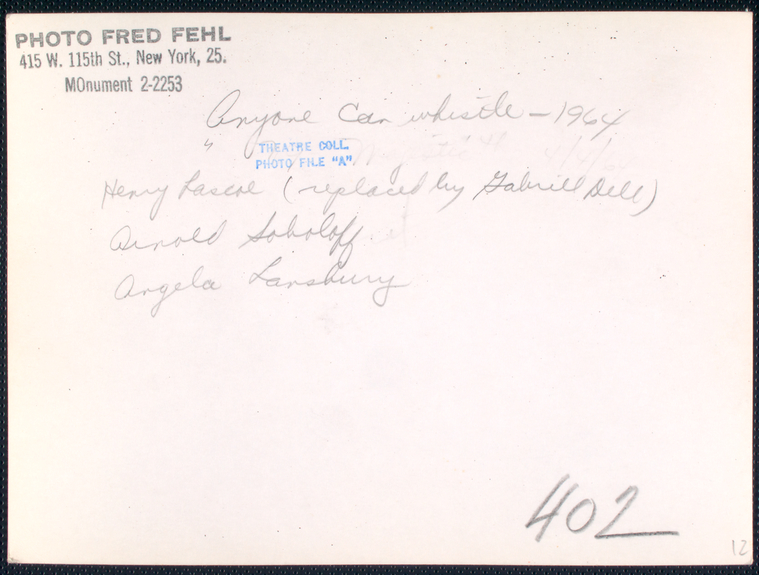 PHOTO FRED FEHL
415 W. 115th St., New York, 25.
MOnument 2-2253
Anyone Can whistle - 1964
"
THEATRE COLL.
PHOTO FILE "A".
Henry Lascoe (replaced by Gabriell Dell)
Arnold Soboloff
Angela Lansbury
402
12